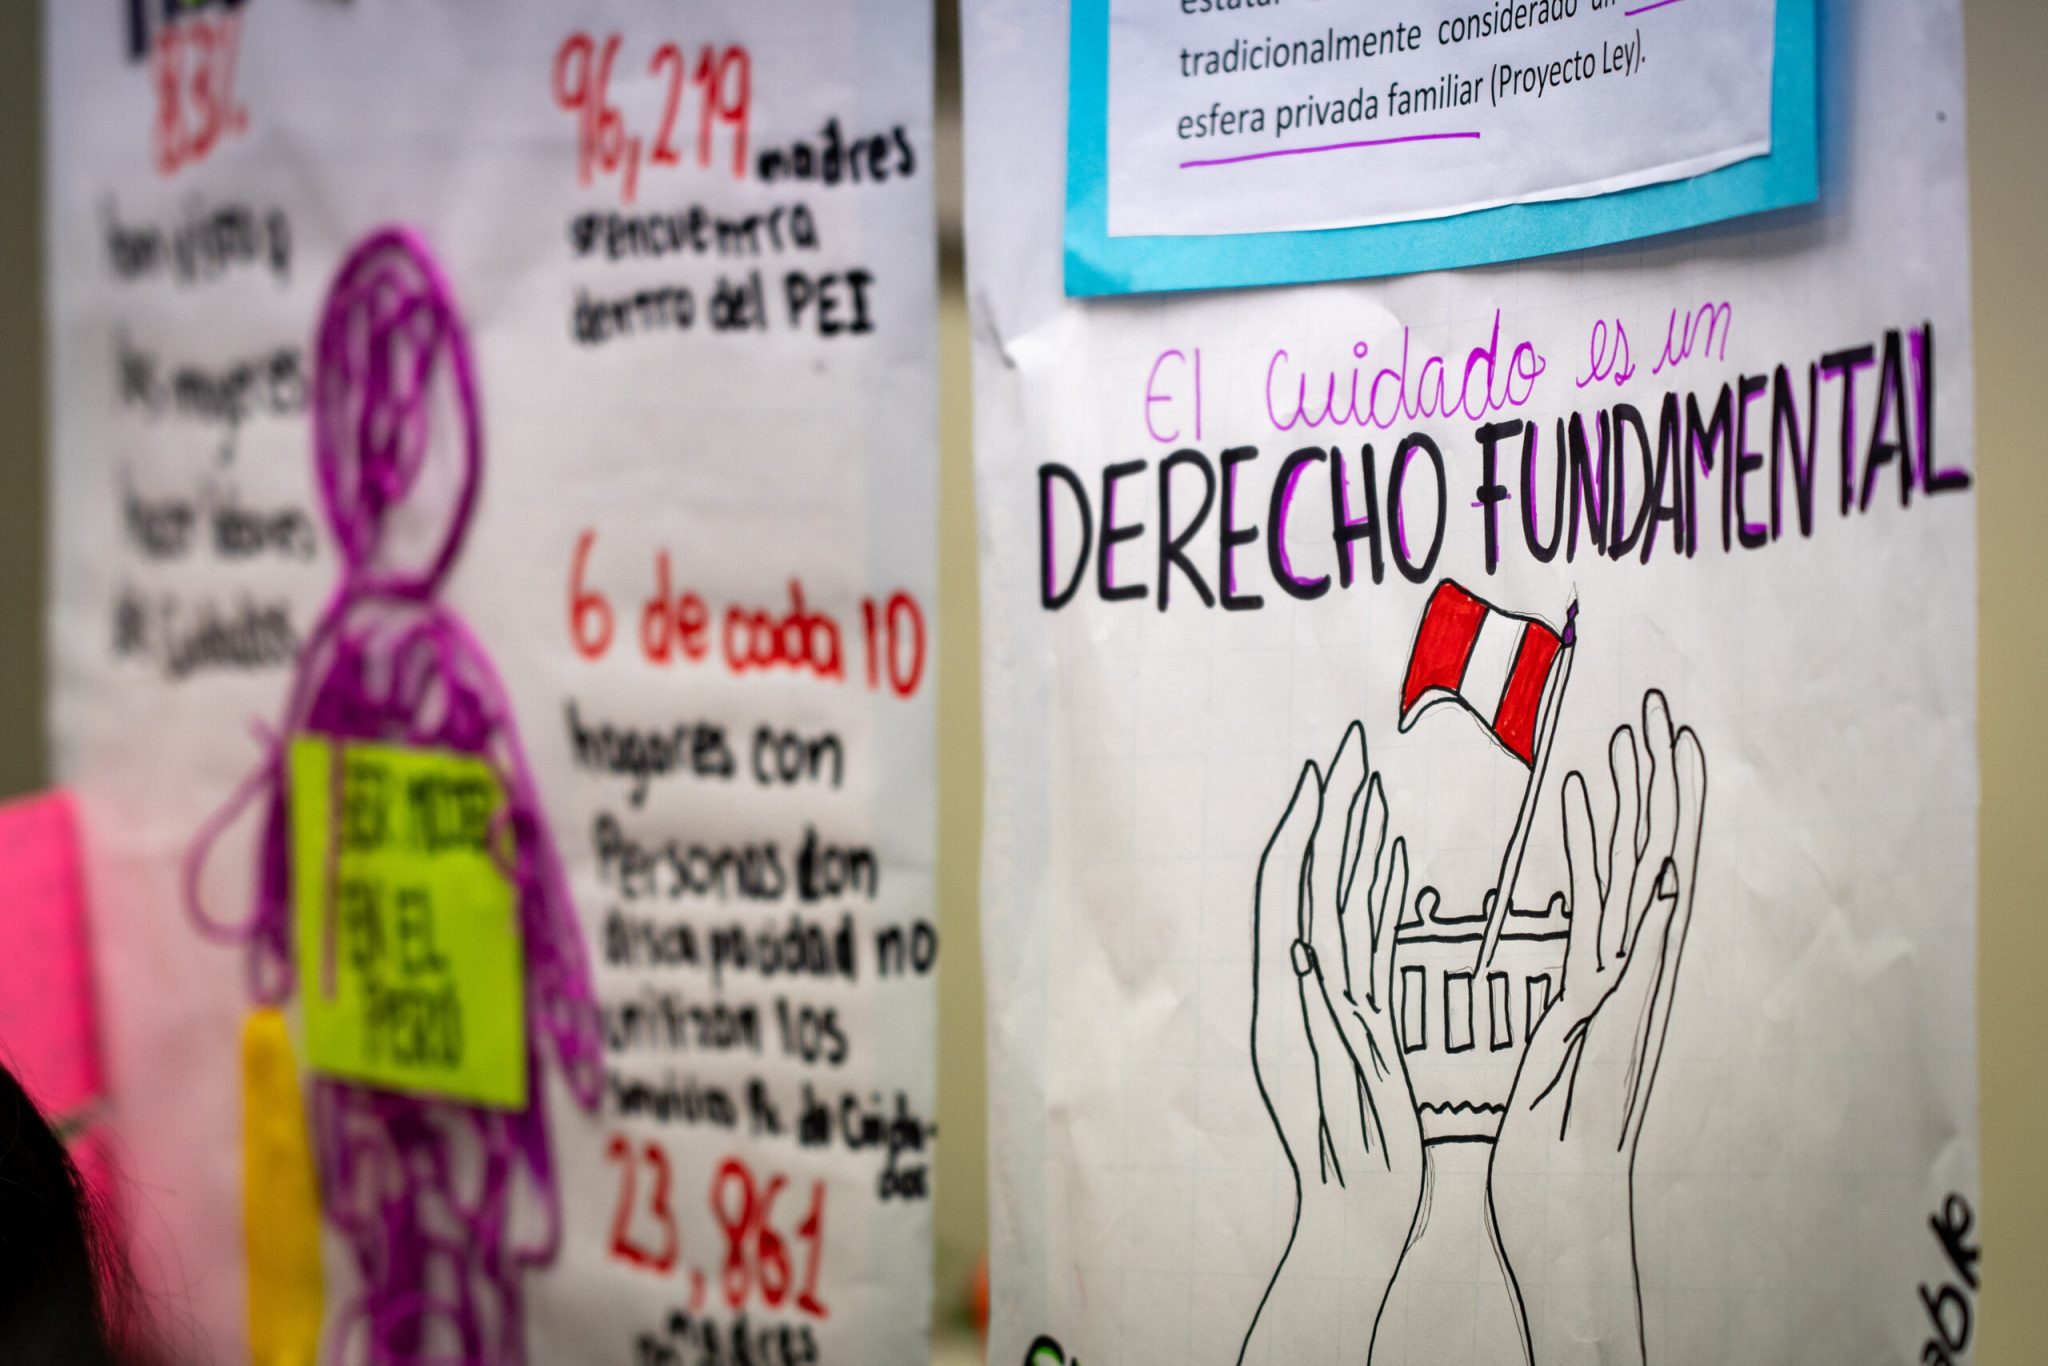 83%
han visto a
las mujeres
hacer labores
de Cuidados
96,219 madres
se encuentra
dentro del PEI
6 de cada 10
hogares con
Personas con
discapacidad no
utilizan los
Servicios Pu. de Cuida-
dos
23,861
madres
SER MUJER
EN EL
PERÚ
estatal
tradicionalmente considerado un
esfera privada familiar (Proyecto Ley).
El cuidado es un
DERECHO FUNDAMENTAL